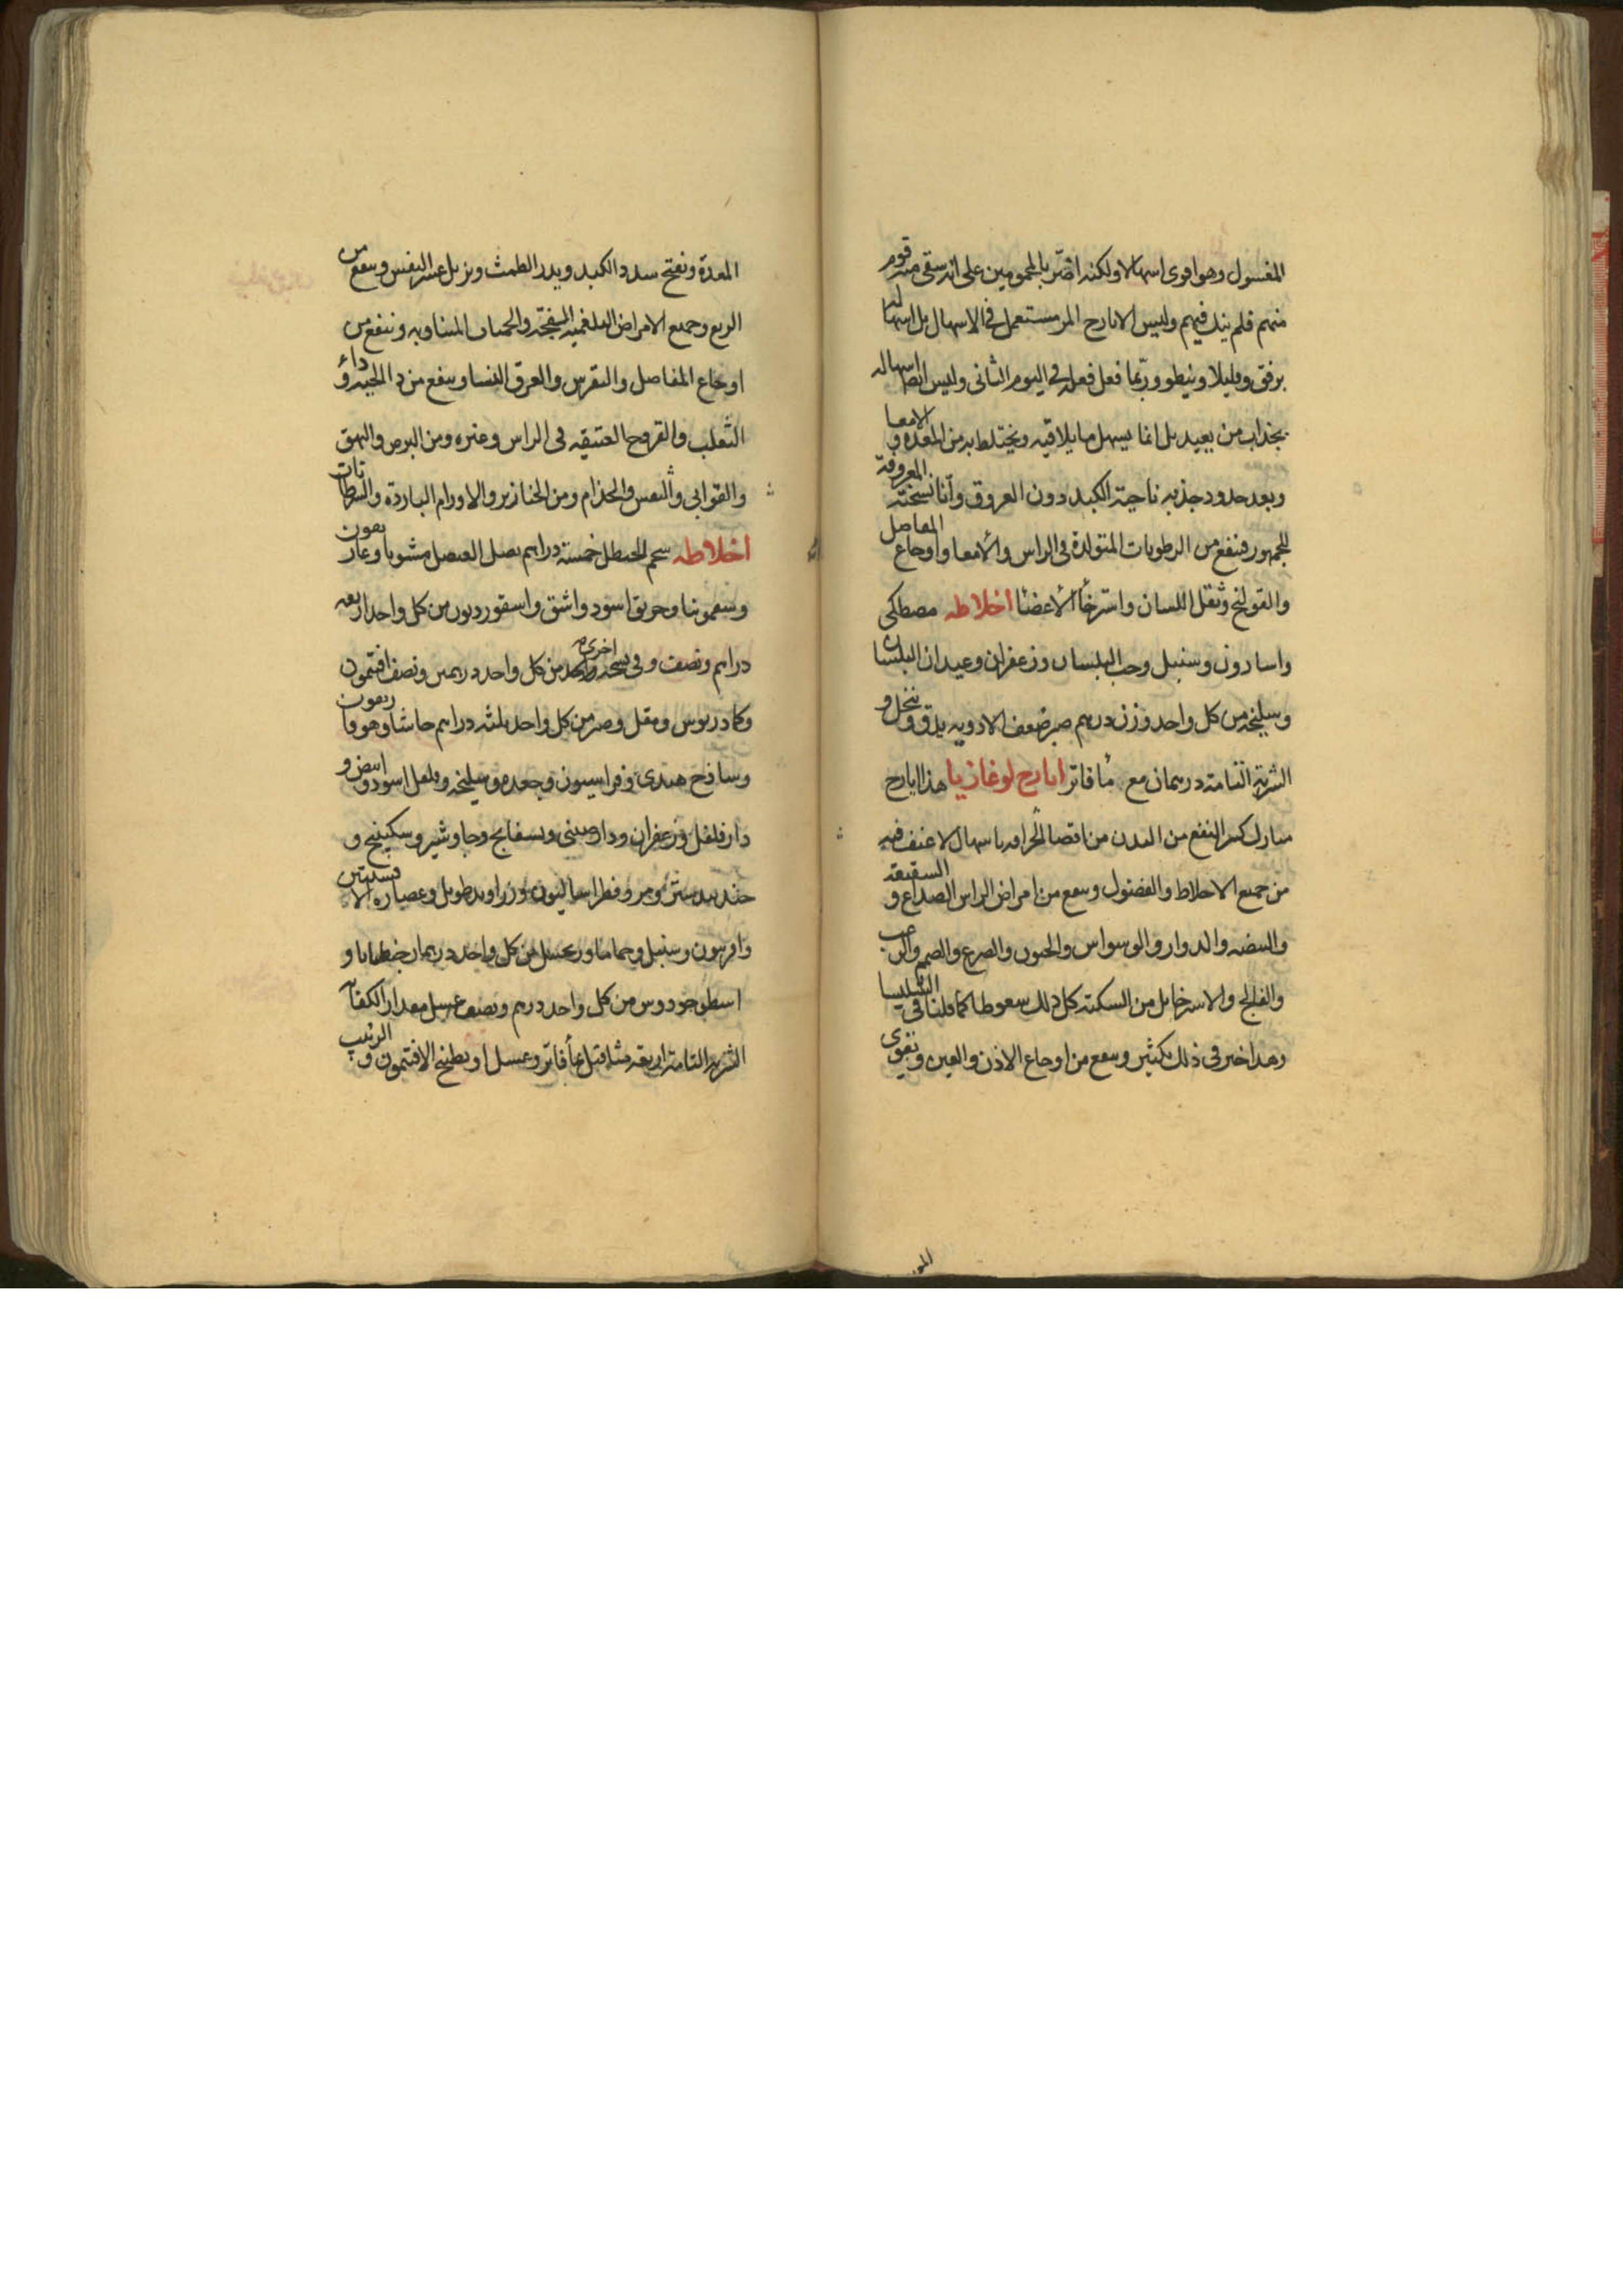 المغسول وهو اقوى اسهالا ولكنه اضر بالمحمومين على انه سقى منه قوم
منهم فلم ينك فيهم وليس الايارج المر مستعمل في الاسهال بل اسهاله
برفق وقليلا ويبطو وربما فعل فعله في اليوم الثانى وليس ايضا اسهاله
بجذاب من بعيد بل انما يسهل ما يلاقيه ويختلط به من المعده و الامعا
وبعد حدود جذبه ناحية الكبد دون العروق وأنا نسخته المعروفة
للجمهور فينفع من الرطوبات المتولدة فى الراس والامعا واوجاع المفاصل
والقولنج وثقل اللسان واسترخأ الاعضا اخلاطه مصطكى
واسارون وسنبل وحب البلسان وزعفران وعيدان البلسان
وسليخه من كل واحد وزن درهم صبر ضعف الادويه يدق و ينخل و
الشربة التامة درهمان مع مأ فاتر ايارج لوغاذيا هذا ايارج
مبارك كثير النفع من البدن باسهال لا عنف فيه
من جميع الاخلاط والفضول وينفع من امراض الراس الصداع و الشقيقه
والبيضه والدوار والوسواس والجنون والصرع والصمم
والفالج والاسترخا بل من السكتة كل ذلك سعوطا كما قلنا فى الشليسا
وهذا اخير فى ذلك بكثير وينفع من اوجاع الاذن والعين و يقوى
المعدة ويفتح سدد الكبد ويدر الطمث ويزيل عسر النفس وينفع من
الربع وجميع الامراض البلغميه الفجة والحميات المتناوبه وينفع من
اوجاع المفاصل والنقرس والعرق النسا وينفع من دا الحيه و داء
الثعلب والقروح العتيقه فى الراس وغيره ومن البرص والبهق
والقوابى والجذام ومن الخنازير والاورام الباردة والسرطانات
اخلاطه شحم الحنظل خمسة دراهم بصل العنصل مشويا وغاريقون
وسقمونيا وخربق اسود واشق واسقورديون من كل واحد اربعه
دراهم ونصف وفى نسخه اخرى من كل واحد درهمين ونصف افتيمون
وكمادريوس ومقل وصبر من كل واحد ثلثه دراهم حاشا وهوفاريقون
وساذج هندى وفراسيون وجعده وسليخه وفلفل اسود و ابيض و
دارفلفل وزعفران ودارصينى وبسفايج وجاوشير وسكبينج و
جندبيدستر ومر وفطراساليون وزراوند طويل وعصاره الافسنتين
وافربيون وسنبل وحماما وزنجبيل من كل واحد درهمان جنطيانا و
اسطوخودوس من كل واحد درهم ونصف عسل مقدار الكفاية
الشربة التامة اربعة مثاقيل بمأ فاتر وعسل او بطبيخ الافتيمون و الزبيب